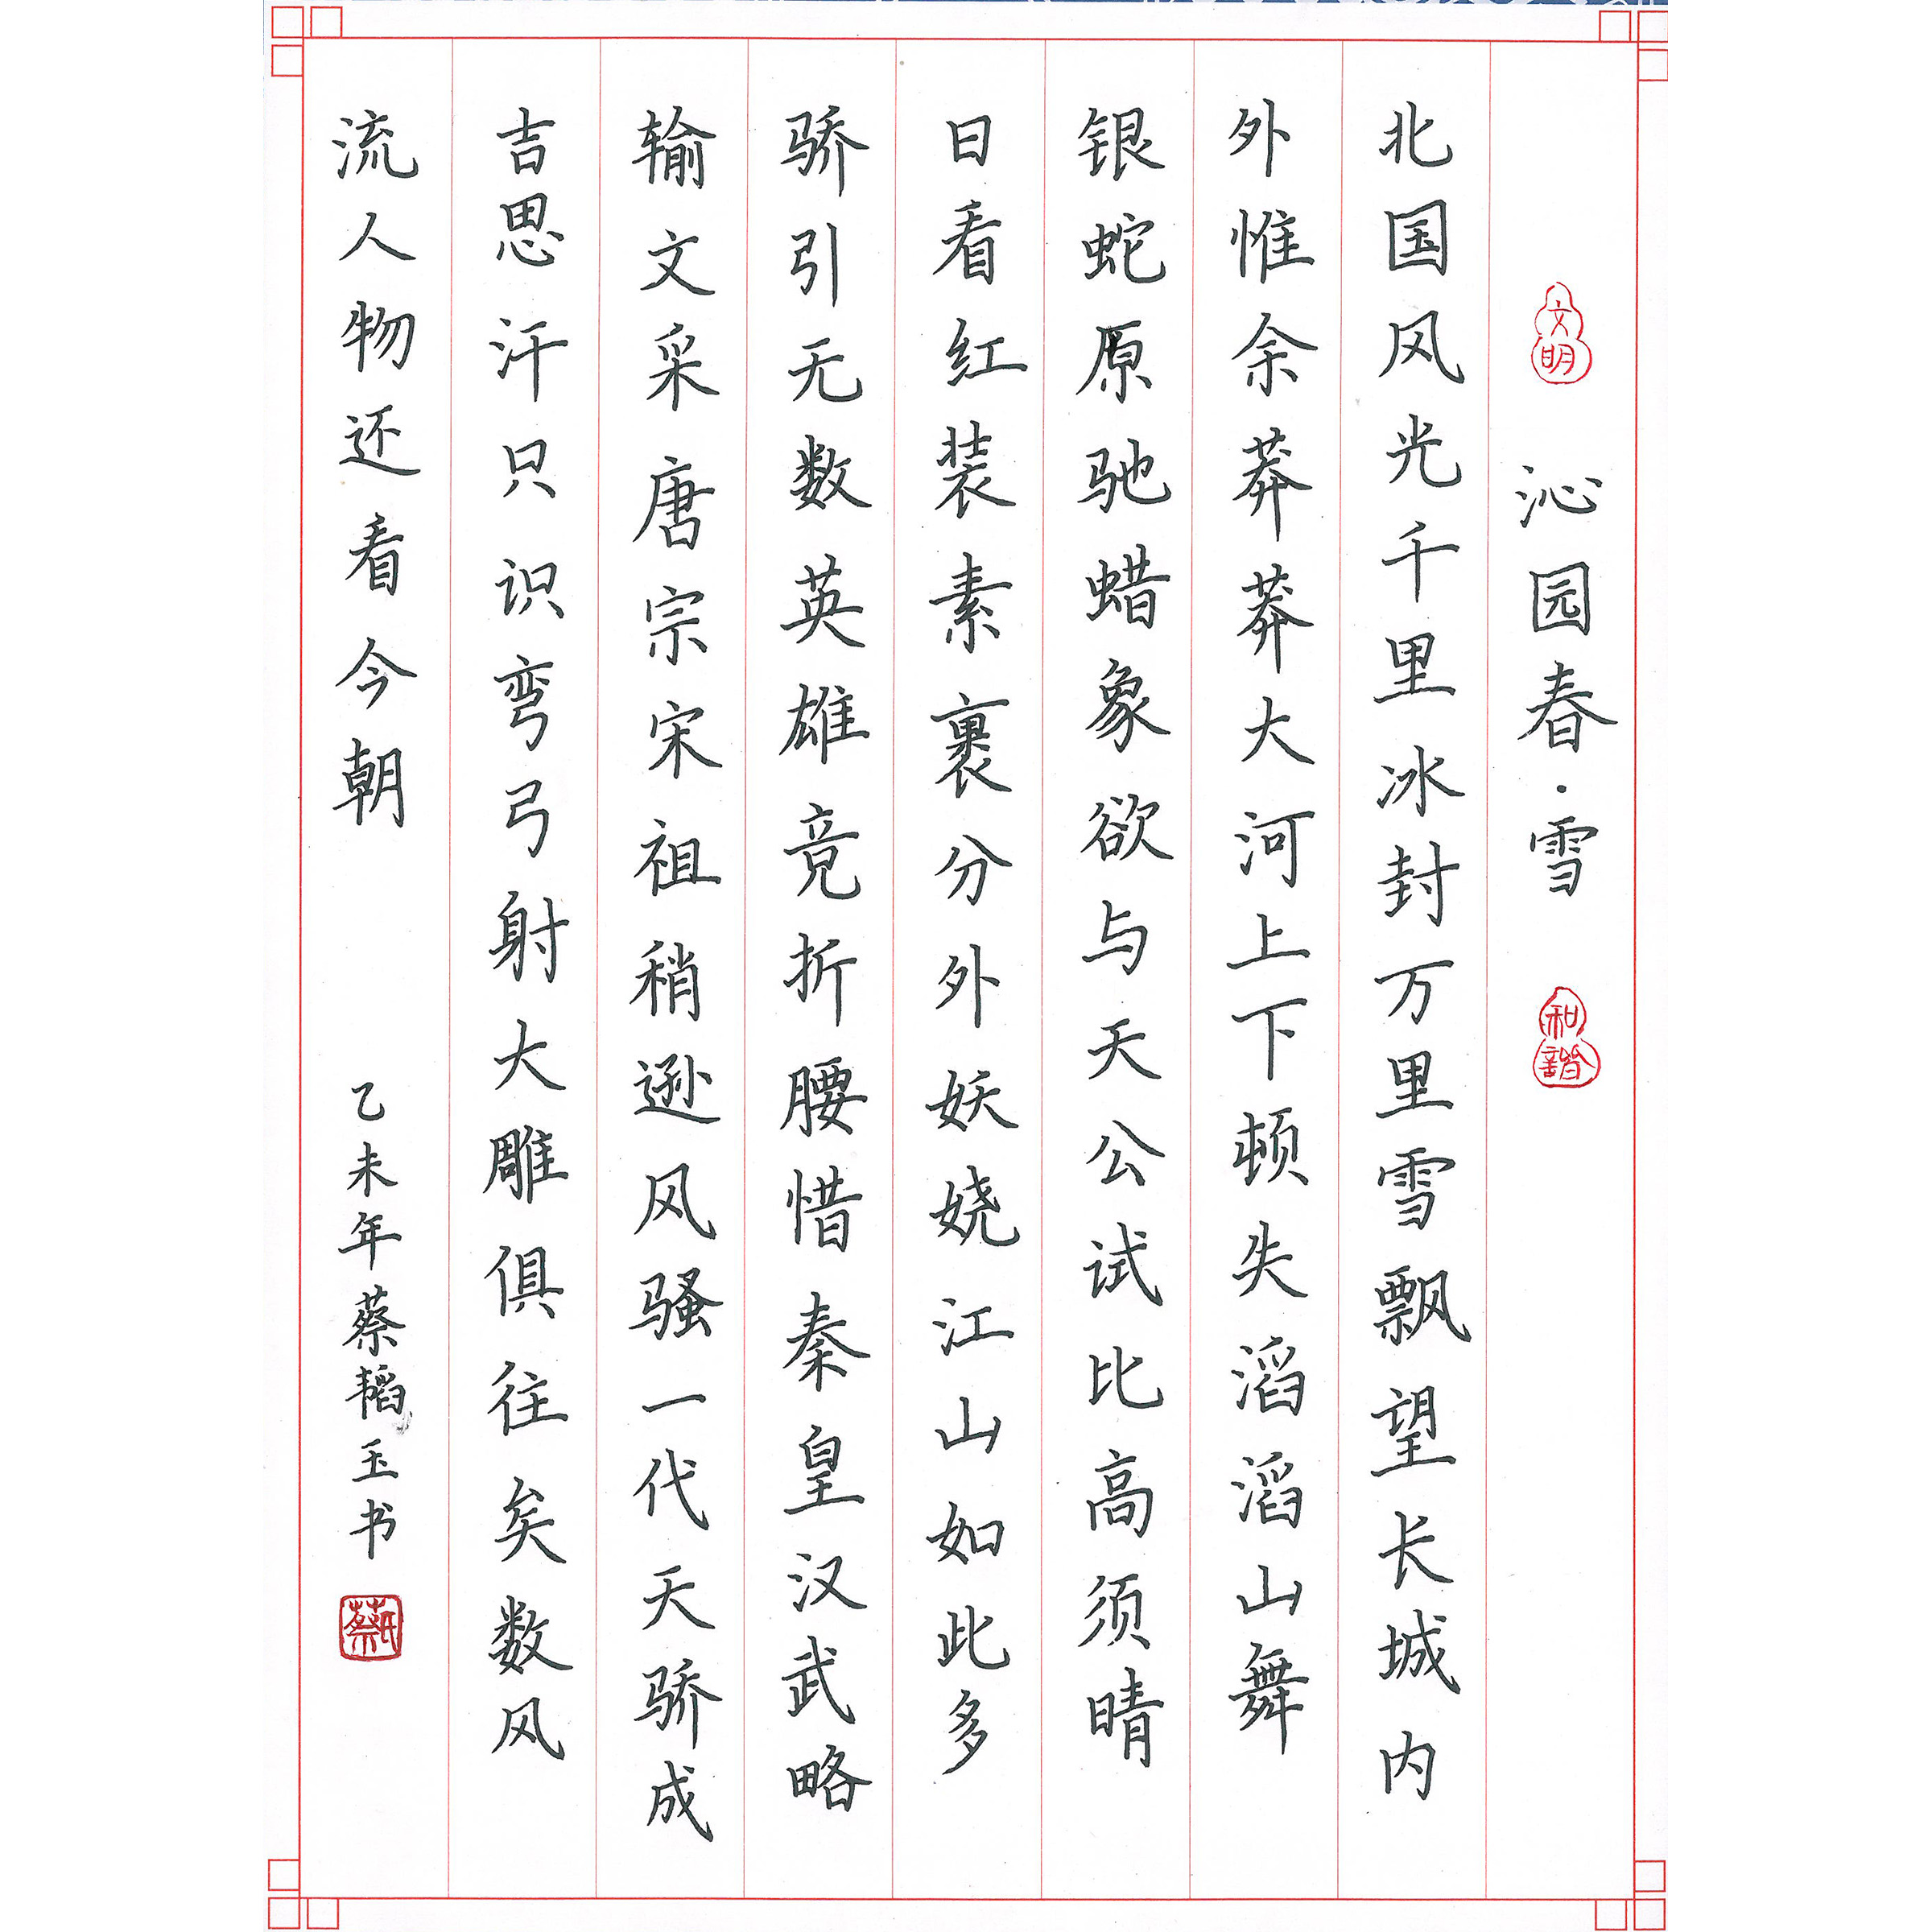 文明
沁园春·雪
和諧
北国风光千里冰封万里雪飘望长城内
外惟余莽莽大河上下顿失滔滔山舞
银蛇原驰蜡象欲与天公试比高须晴
日看红装素裹分外妖娆江山如此多
骄引无数英雄竟折腰惜秦皇汉武略
输文采唐宗宋祖稍逊风骚一代天骄成
吉思汗只识弯弓射大雕俱往矣数风
流人物还看今朝
乙未年蔡韬玉书
蔡氏